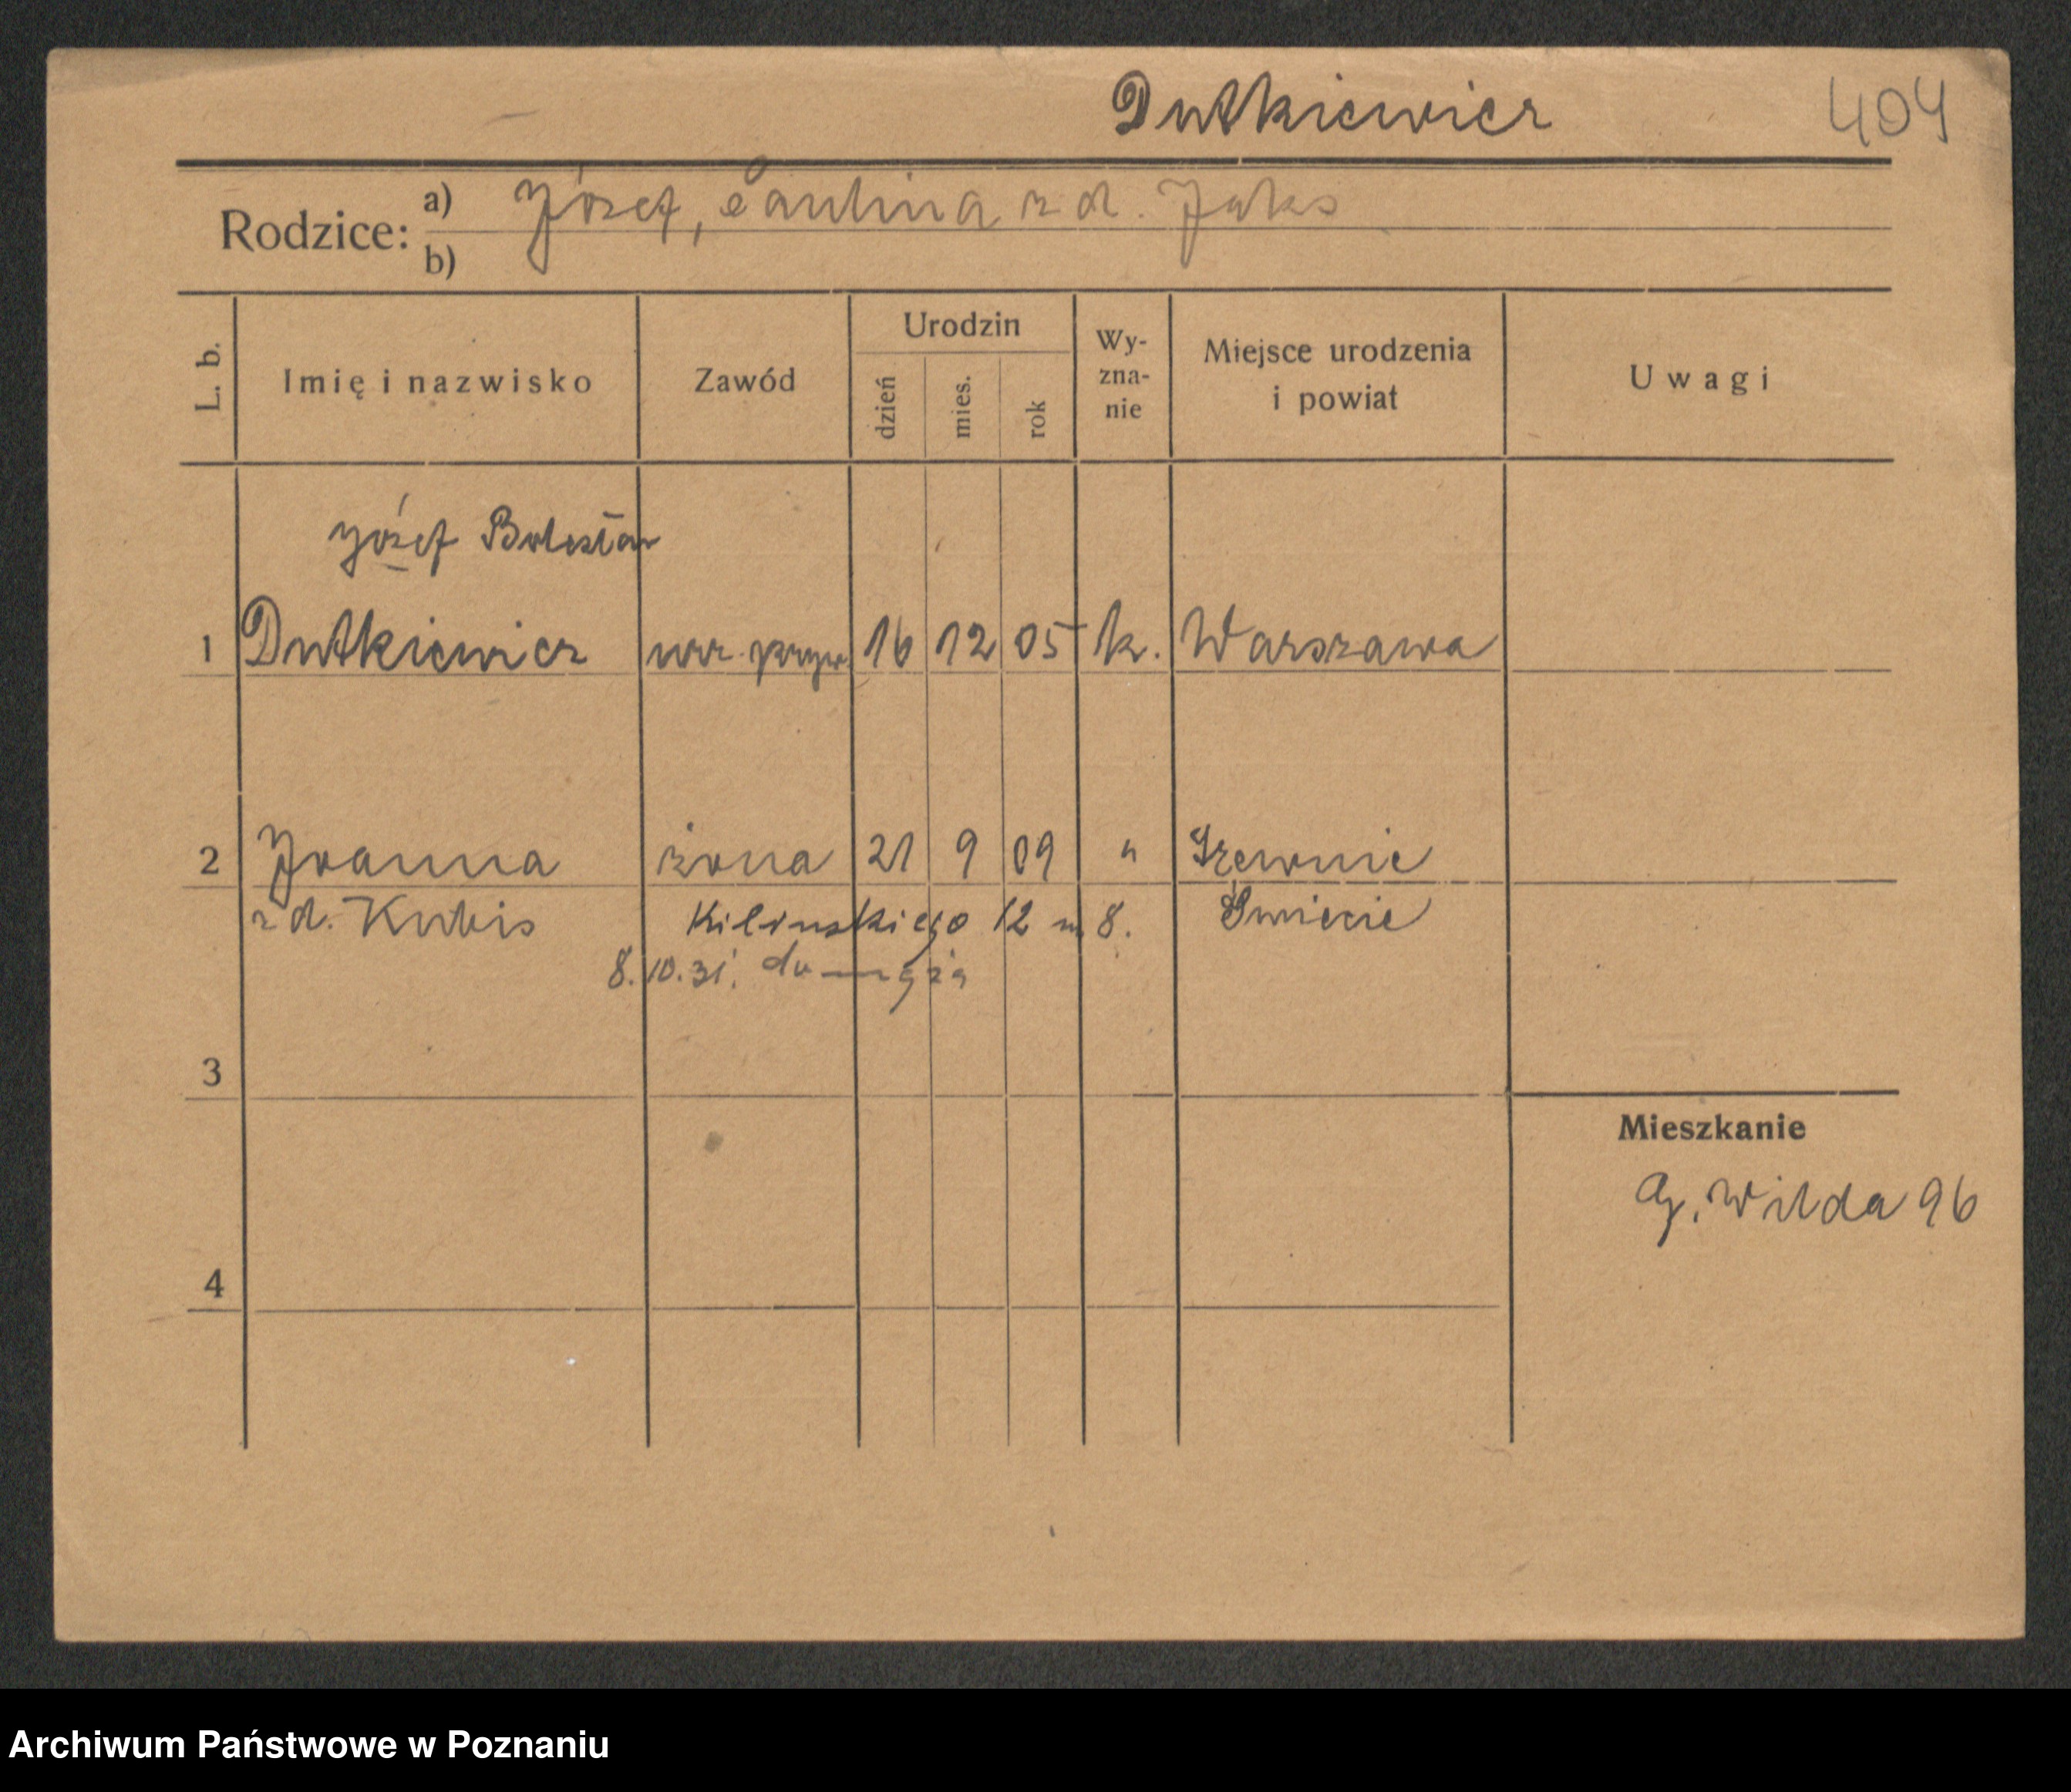 Dutkiewicz 404
Rodzice: a) Józef, Paulina z d. Jaks
b)
L. b. Imię i nazwisko Zawód Urodzin dzień mies. rok Wy-zna-nie Miejsce urodzenia i powiat Uwagi
Józef Bolesław
1 Dutkiewicz urz. pryw. 16 12 05 k. Warszawa
2 Joanna żona 21 9 09 "
z d. Kubis Kilinskiego 12 m 8. Świecie
8.10.31. do męża
3
Mieszkanie
G. Wilda 96
4
Archiwum Państwowe w Poznaniu